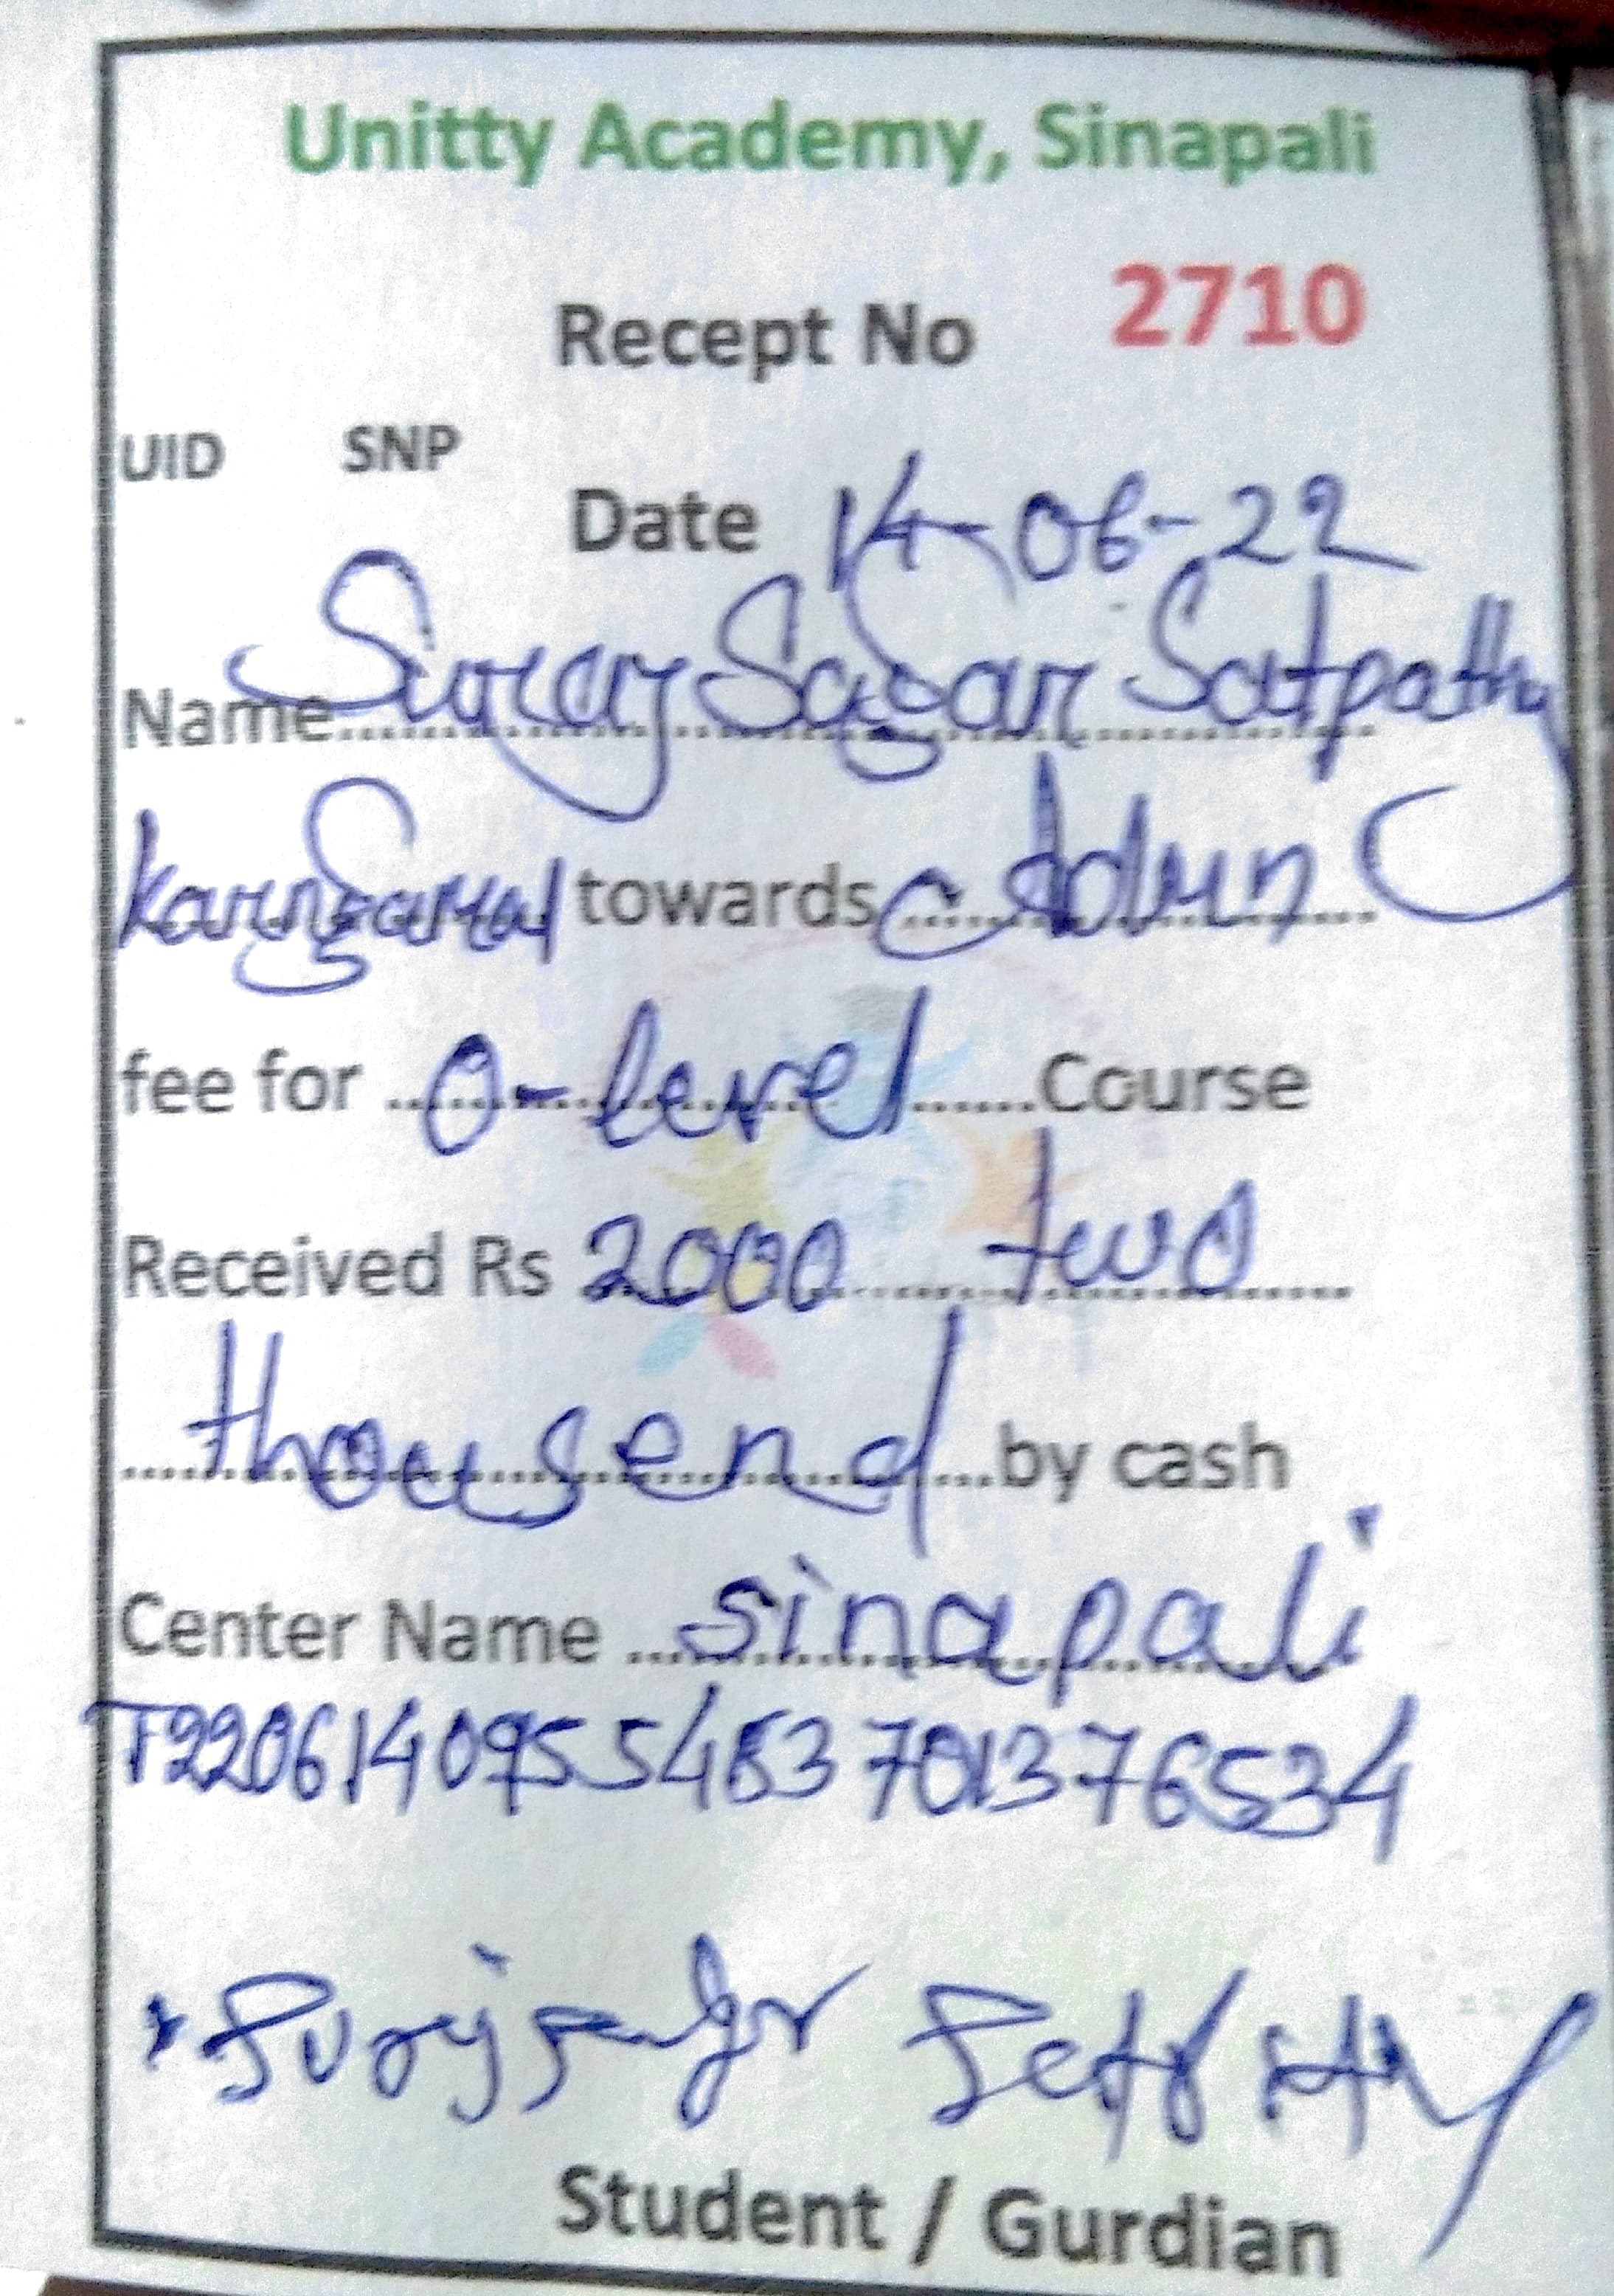 Unitty Academy, Sinapali
Recept No 2710
UID SNP
Date 14-06-22
Name Suraj Sagar Satpathy
Karngamal towards Admn
fee for O-level Course
Received Rs 2000 two
thousend by cash
Center Name sinapali
T2206140955463701376534
Student / Gurdian